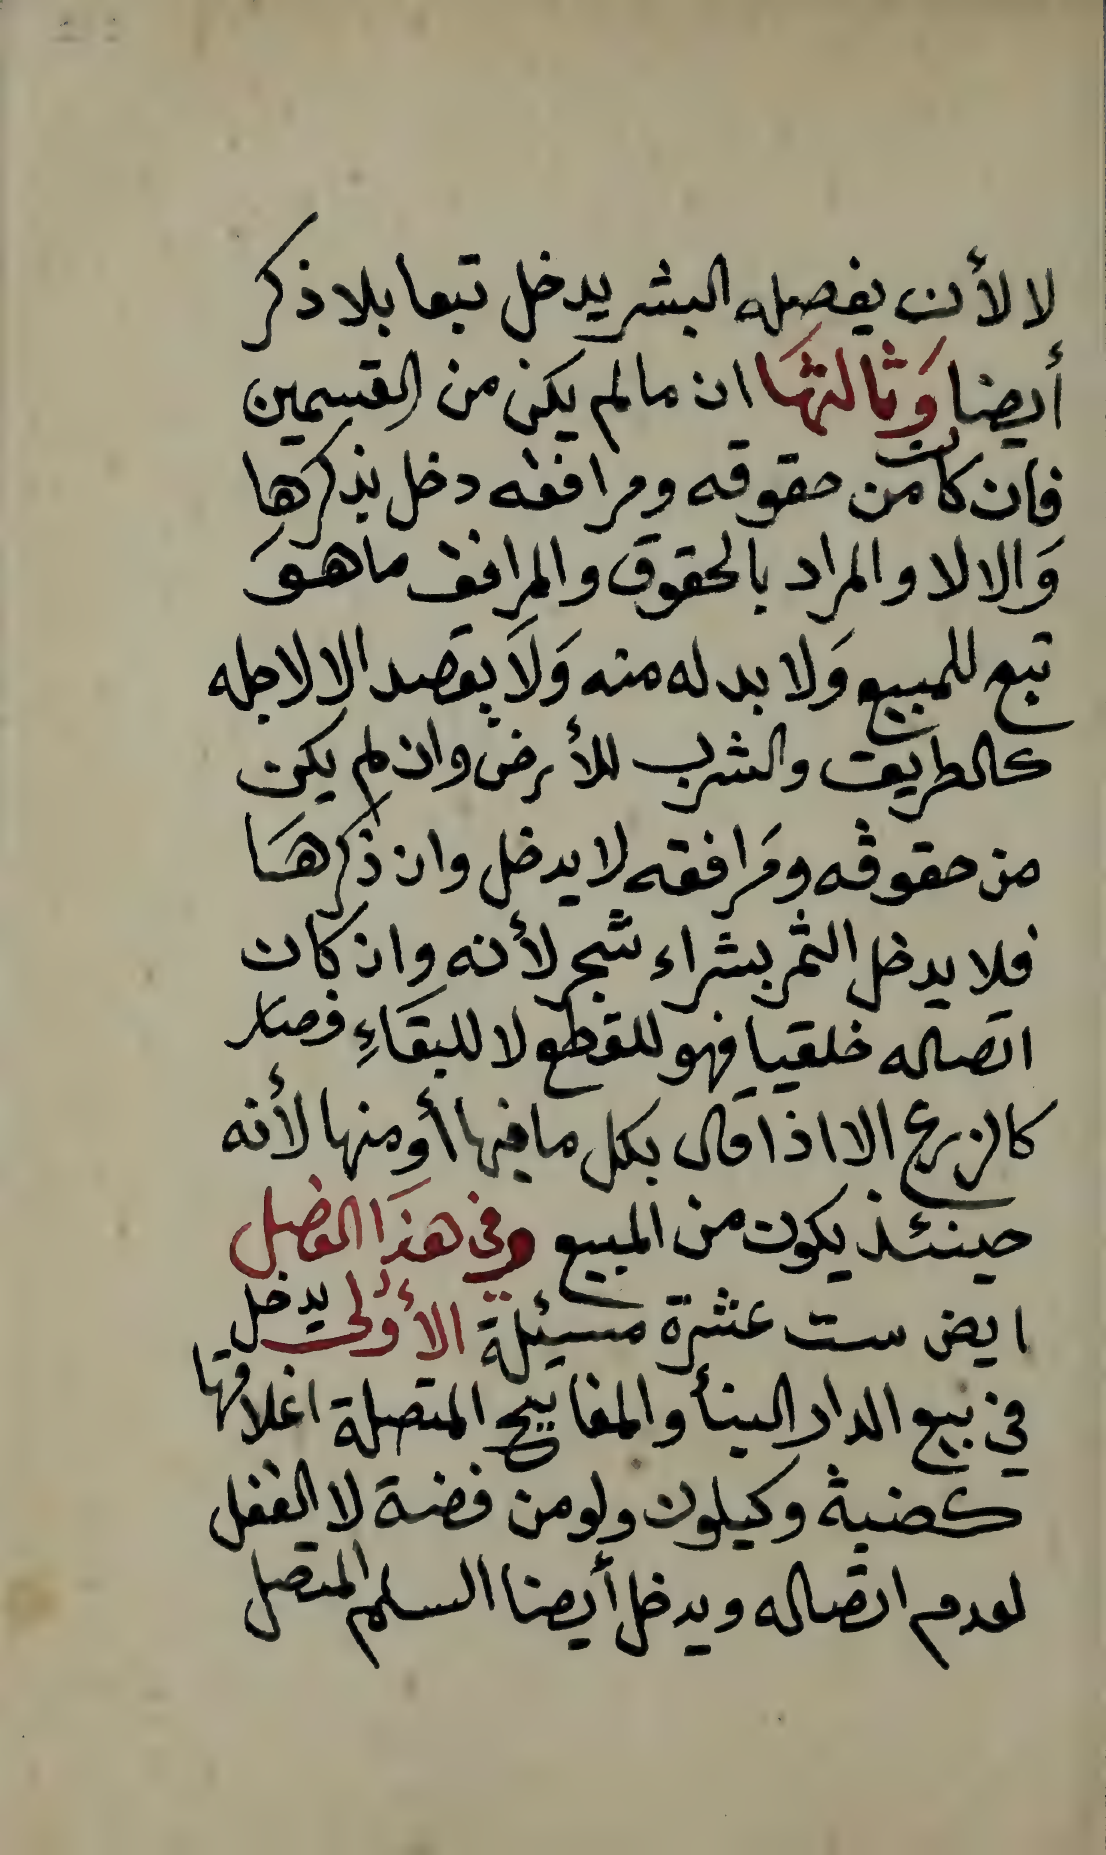 لا لأن يفصله البشر يدخل تبعا بلا ذكر
أيضا وَثالثهَا ان ما لم يكن من القسمين
فان كان من حقوقه ومرافقه دخل بذكرها
وَالا لا والمراد بالحقوق والمرافق ما هوَ
تبع للمبيع وَلا بد له منه وَلَا يقصد الا لاجله
كالطريق والشرب للأرض وان لم يكن
من حقوقه ومَرافقه لا يدخل وان ذكرهَا
فلا يدخل الثمر بشراء شجر لأنه وان كان
اتصاله خلقيا فهو للقطع لا للبقَاءِ فصَار
كالزرع الا اذا قال بكل ما فيها أو منها لأنه
حينئذ يكون من المبيع وفي هذَا الفصل
ايض ست عشرة مسيئلة الأُولى يدخل
في بيع الدار البنأ والمفاتيح المتصلة اغلاقها
كضبة وكيلون ولو من فضة لا القفل
لعدم اتصاله ويدخل أيضا السلم المتصل